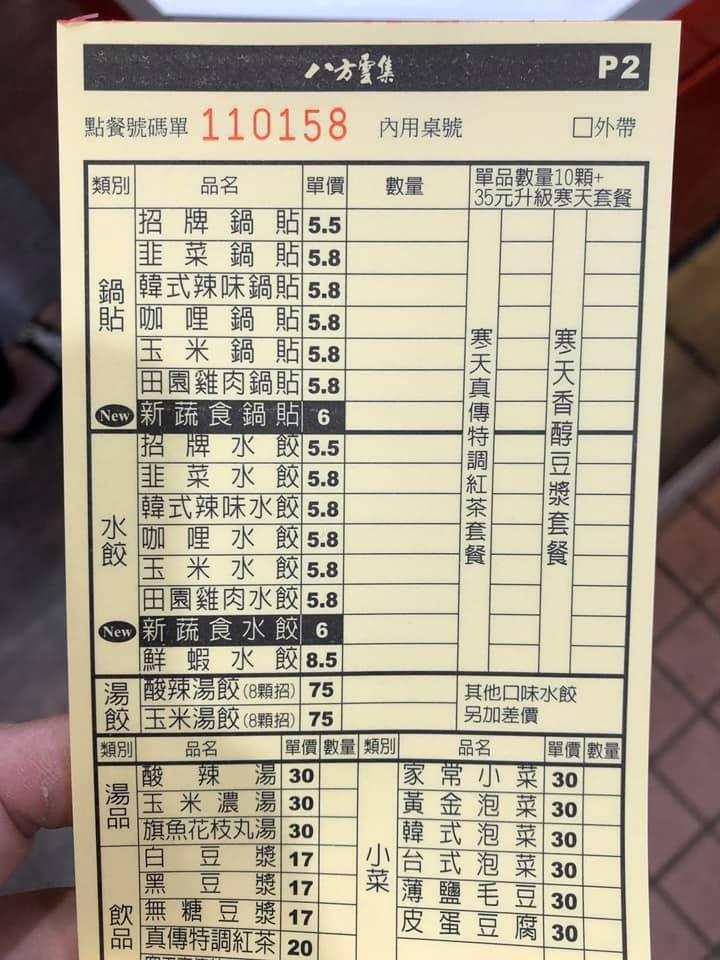 八方雲集 P2
點餐號碼單 110158 內用桌號 □外帶
類別 品名 單價 數量 單品數量10顆+
35元升級寒天套餐
鍋貼
招牌鍋貼 5.5
韭菜鍋貼 5.8
韓式辣味鍋貼 5.8
咖哩鍋貼 5.8
玉米鍋貼 5.8
田園雞肉鍋貼 5.8
New 新蔬食鍋貼 6
水餃
招牌水餃 5.5
韭菜水餃 5.8
韓式辣味水餃 5.8
咖哩水餃 5.8
玉米水餃 5.8
田園雞肉水餃 5.8
New 新蔬食水餃 6
鮮蝦水餃 8.5
寒天真傳特調紅茶套餐
寒天香醇豆漿套餐
湯餃
酸辣湯餃(8顆招) 75
玉米湯餃(8顆招) 75
其他口味水餃
另加差價
類別 品名 單價 數量 類別 品名 單價 數量
湯品
酸辣湯 30
玉米濃湯 30
旗魚花枝丸湯 30
飲品
白豆漿 17
黑豆漿 17
無糖豆漿 17
真傳特調紅茶 20
小菜
家常小菜 30
黃金泡菜 30
韓式泡菜 30
台式泡菜 30
薄鹽毛豆 30
皮蛋豆腐 30